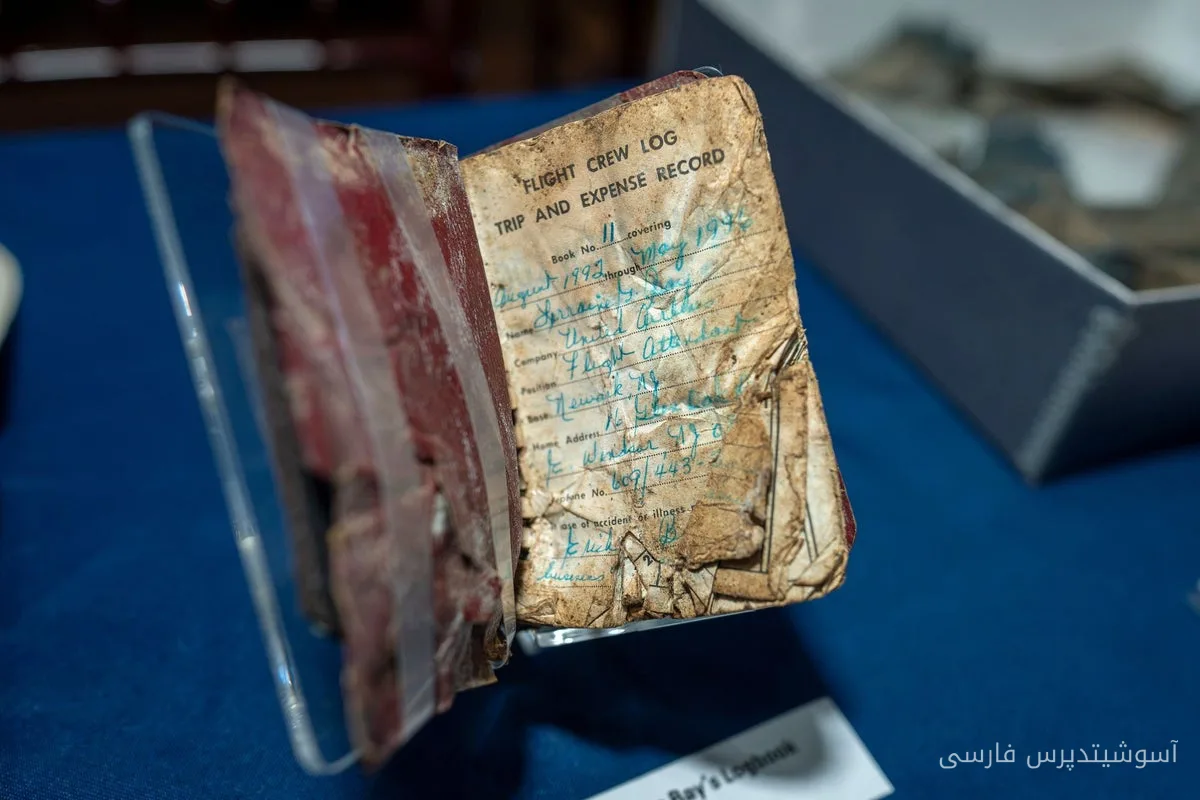 FLIGHT CREW LOG
TRIP AND EXPENSE RECORD
Book No. 11 covering
August 1992 through May 1996
Name Lorraine G. Bay
Company United Airlines
Position Flight Attendant
Base Newark NJ
Home Address 16
E. Windsor NJ 0
Telephone No. 609/443-
ase of accident or illness
Erich B
business
Bay's Logbook
آسوشیتدپرس فارسی